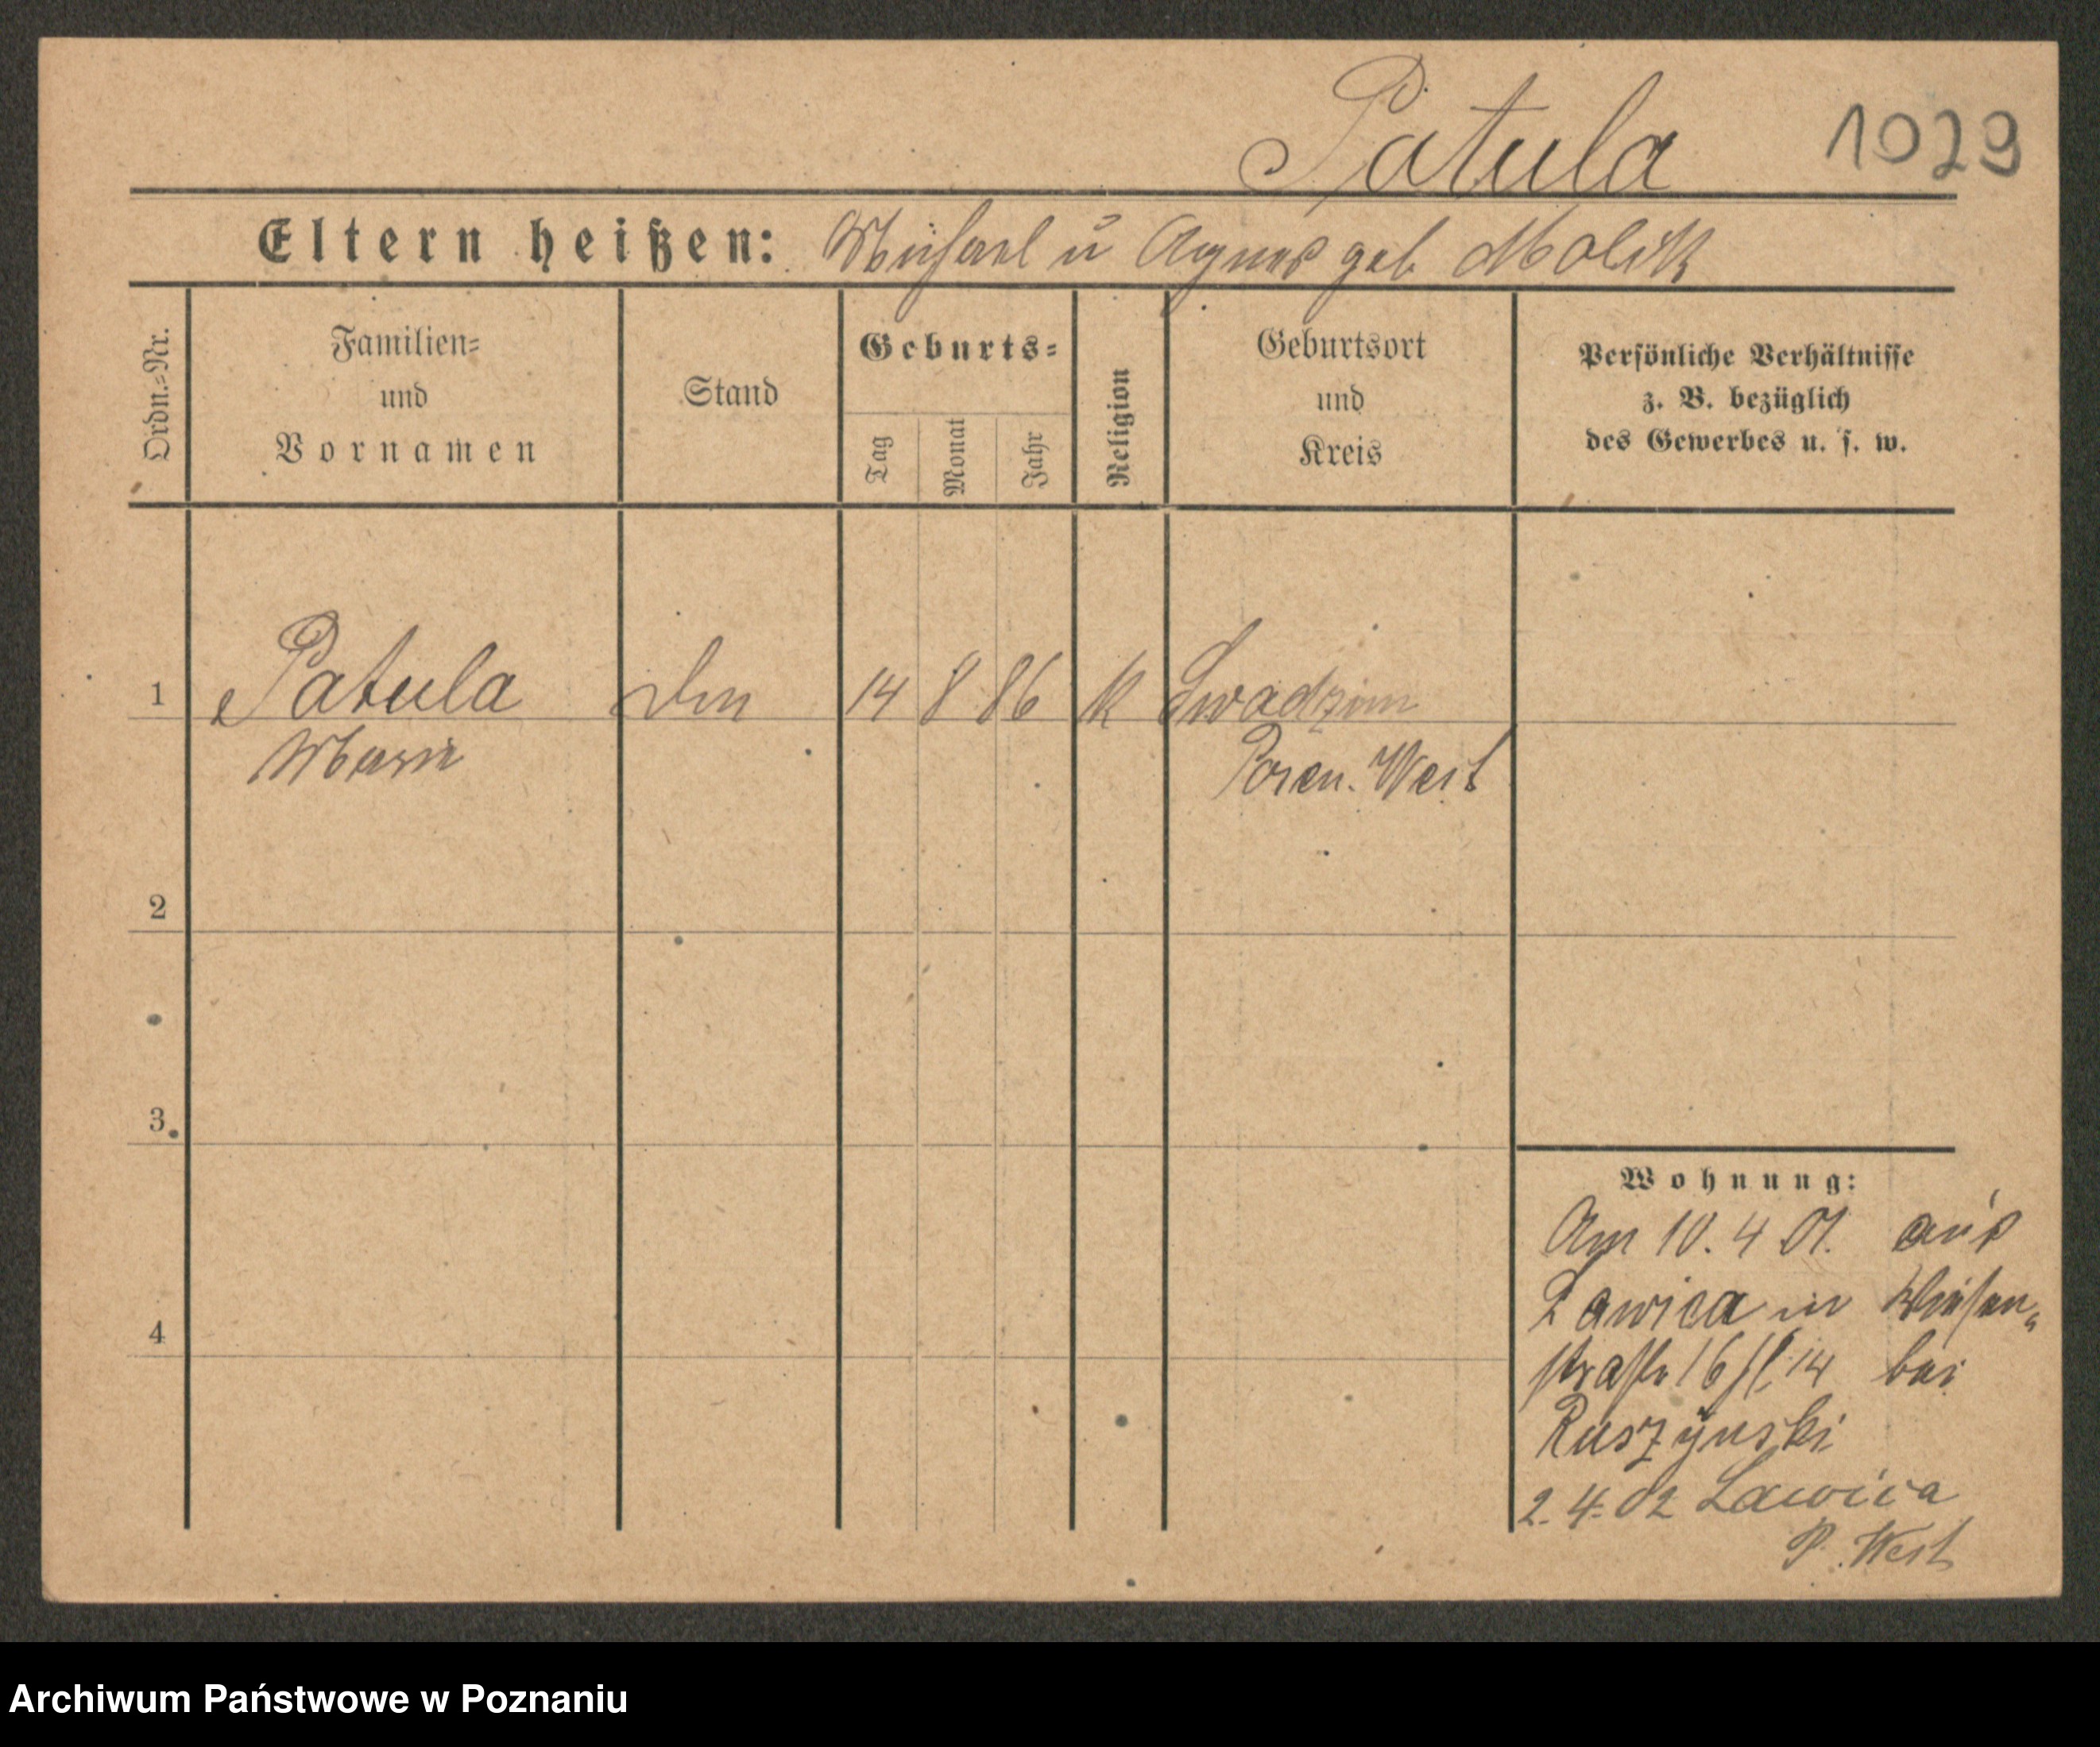 Patula 1029
Eltern heißen: Michael u Agnes geb Molik
Ordn.=Nr.
Familien=
und
Vornamen
Stand
Geburts=
Tag
Monat
Jahr
Religion
Geburtsort
und
Kreis
Persönliche Verhältnisse
z. B. bezüglich
des Gewerbes u. s. w.
1 Patula 14 8 86 k Swadzim
Marie Posen. West
2
3
4
Wohnung:
Am 10. 4 01. aus
Lawica in Wiesen=
straße 16 14 bei
Ruszynski
2. 4. 02 Lawica
P. West
Archiwum Państwowe w Poznaniu